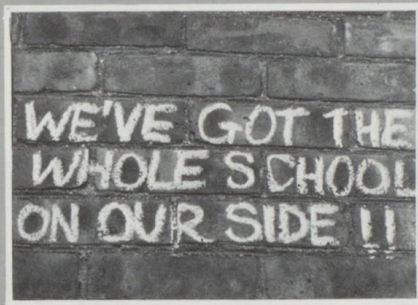 WE'VE GOT THE
WHOLE SCHOOL
ON OUR SIDE !!